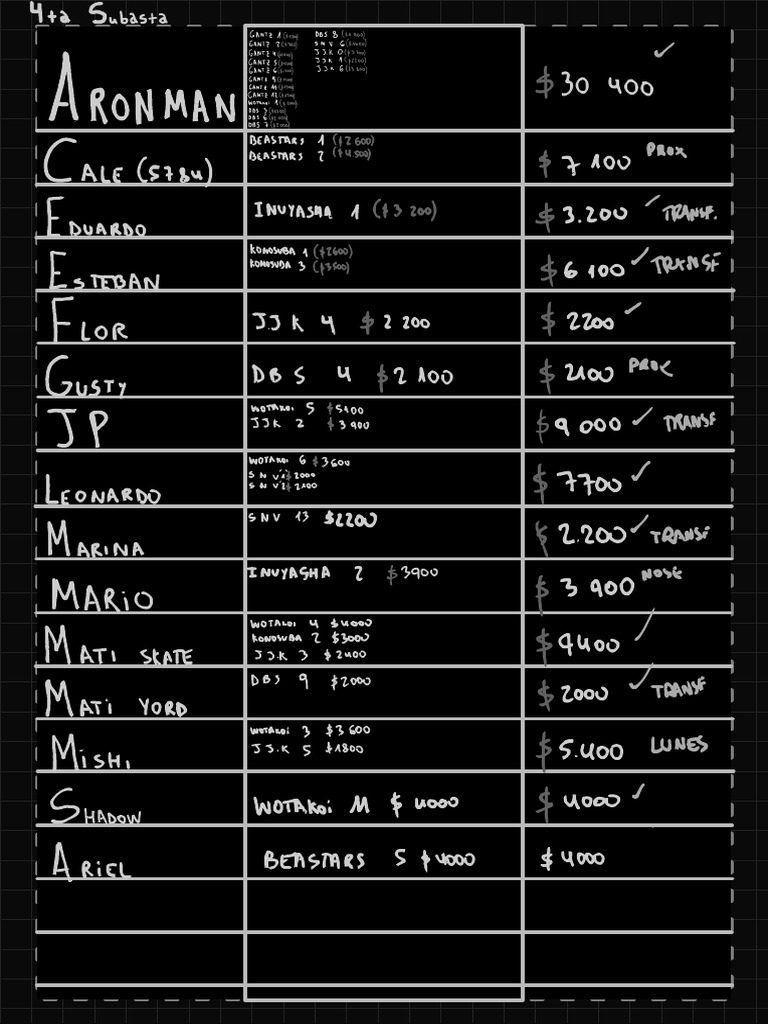 4ta Subasta
ARONMAN
GANTZ 1
GANTZ 2
GANTZ 4
GANTZ 5
GANTZ 6
GANTZ 9
GANTZ 11
GANTZ 12
WOTAKOI 1
DBS 3
DBS 6
DBS 7
DBS 8
SNV 6
JJK 0
JJK 1
JJK 6
$ 30 400 ✓
CALE (5784)
BEASTARS 1 ($2600)
BEASTARS 2 ($4.500)
$ 7 100 PROX
EDUARDO
INUYASHA 1 ($3 200)
$ 3.200 ✓ TRANSF.
ESTEBAN
KONOSUBA 1 ($2600)
KONOSUBA 3 ($3500)
$ 6 100 ✓ TRANSF
FLOR
JJK 4 $ 2 200
$ 2200 ✓
GUSTY
DBS 4 $ 2 100
$ 2100 PROX
JP
WOTAKOI 5 $5100
JJK 2 $3 900
$ 9 000 ✓ TRANSF
LEONARDO
WOTAKOI 6 $3600
SNV $2000
SNV $2100
$ 7700 ✓
MARINA
SNV 13 $2200
$ 2.200 ✓ TRANSF
MARIO
INUYASHA 2 $3900
$ 3 900 NOSE
MATI SKATE
WOTAKOI 4 $4000
KONOSUBA 2 $3000
JJK 3 $2400
$9400 ✓
MATI YORD
DBS 9 $2000
$ 2000 ✓ TRANSF
MISHI
WOTAKOI 3 $3600
JJK 5 $1800
$ 5.400 LUNES
SHADOW
WOTAKOI 11 $ 4000
$ 4000 ✓
ARIEL
BEASTARS 5 $4000
$ 4000